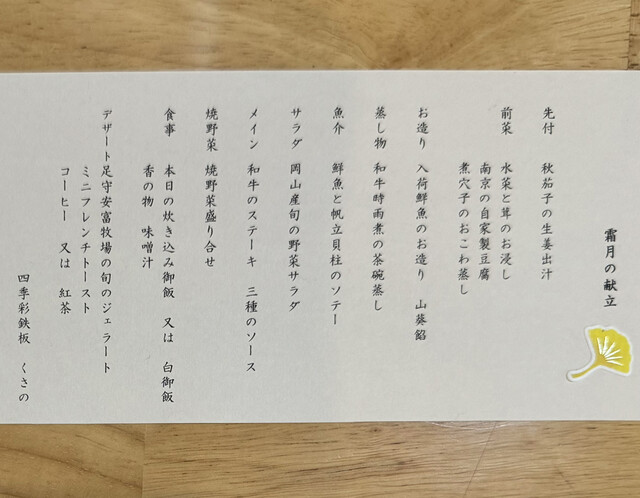 霜月の献立
先付 秋茄子の生姜出汁
前菜 水菜と茸のお浸し
南京の自家製豆腐
煮穴子のおこわ蒸し
お造り 入荷鮮魚のお造り 山葵餡
蒸し物 和牛時雨煮の茶碗蒸し
魚介 鮮魚と帆立貝柱のソテー
サラダ 岡山産旬の野菜サラダ
メイン 和牛のステーキ 三種のソース
焼野菜 焼野菜盛り合せ
食事 本日の炊き込み御飯 又は 白御飯
香の物 味噌汁
デザート 足守安富牧場の旬のジェラート
ミニフレンチトースト
コーヒー 又は 紅茶
四季彩鉄板 くさの